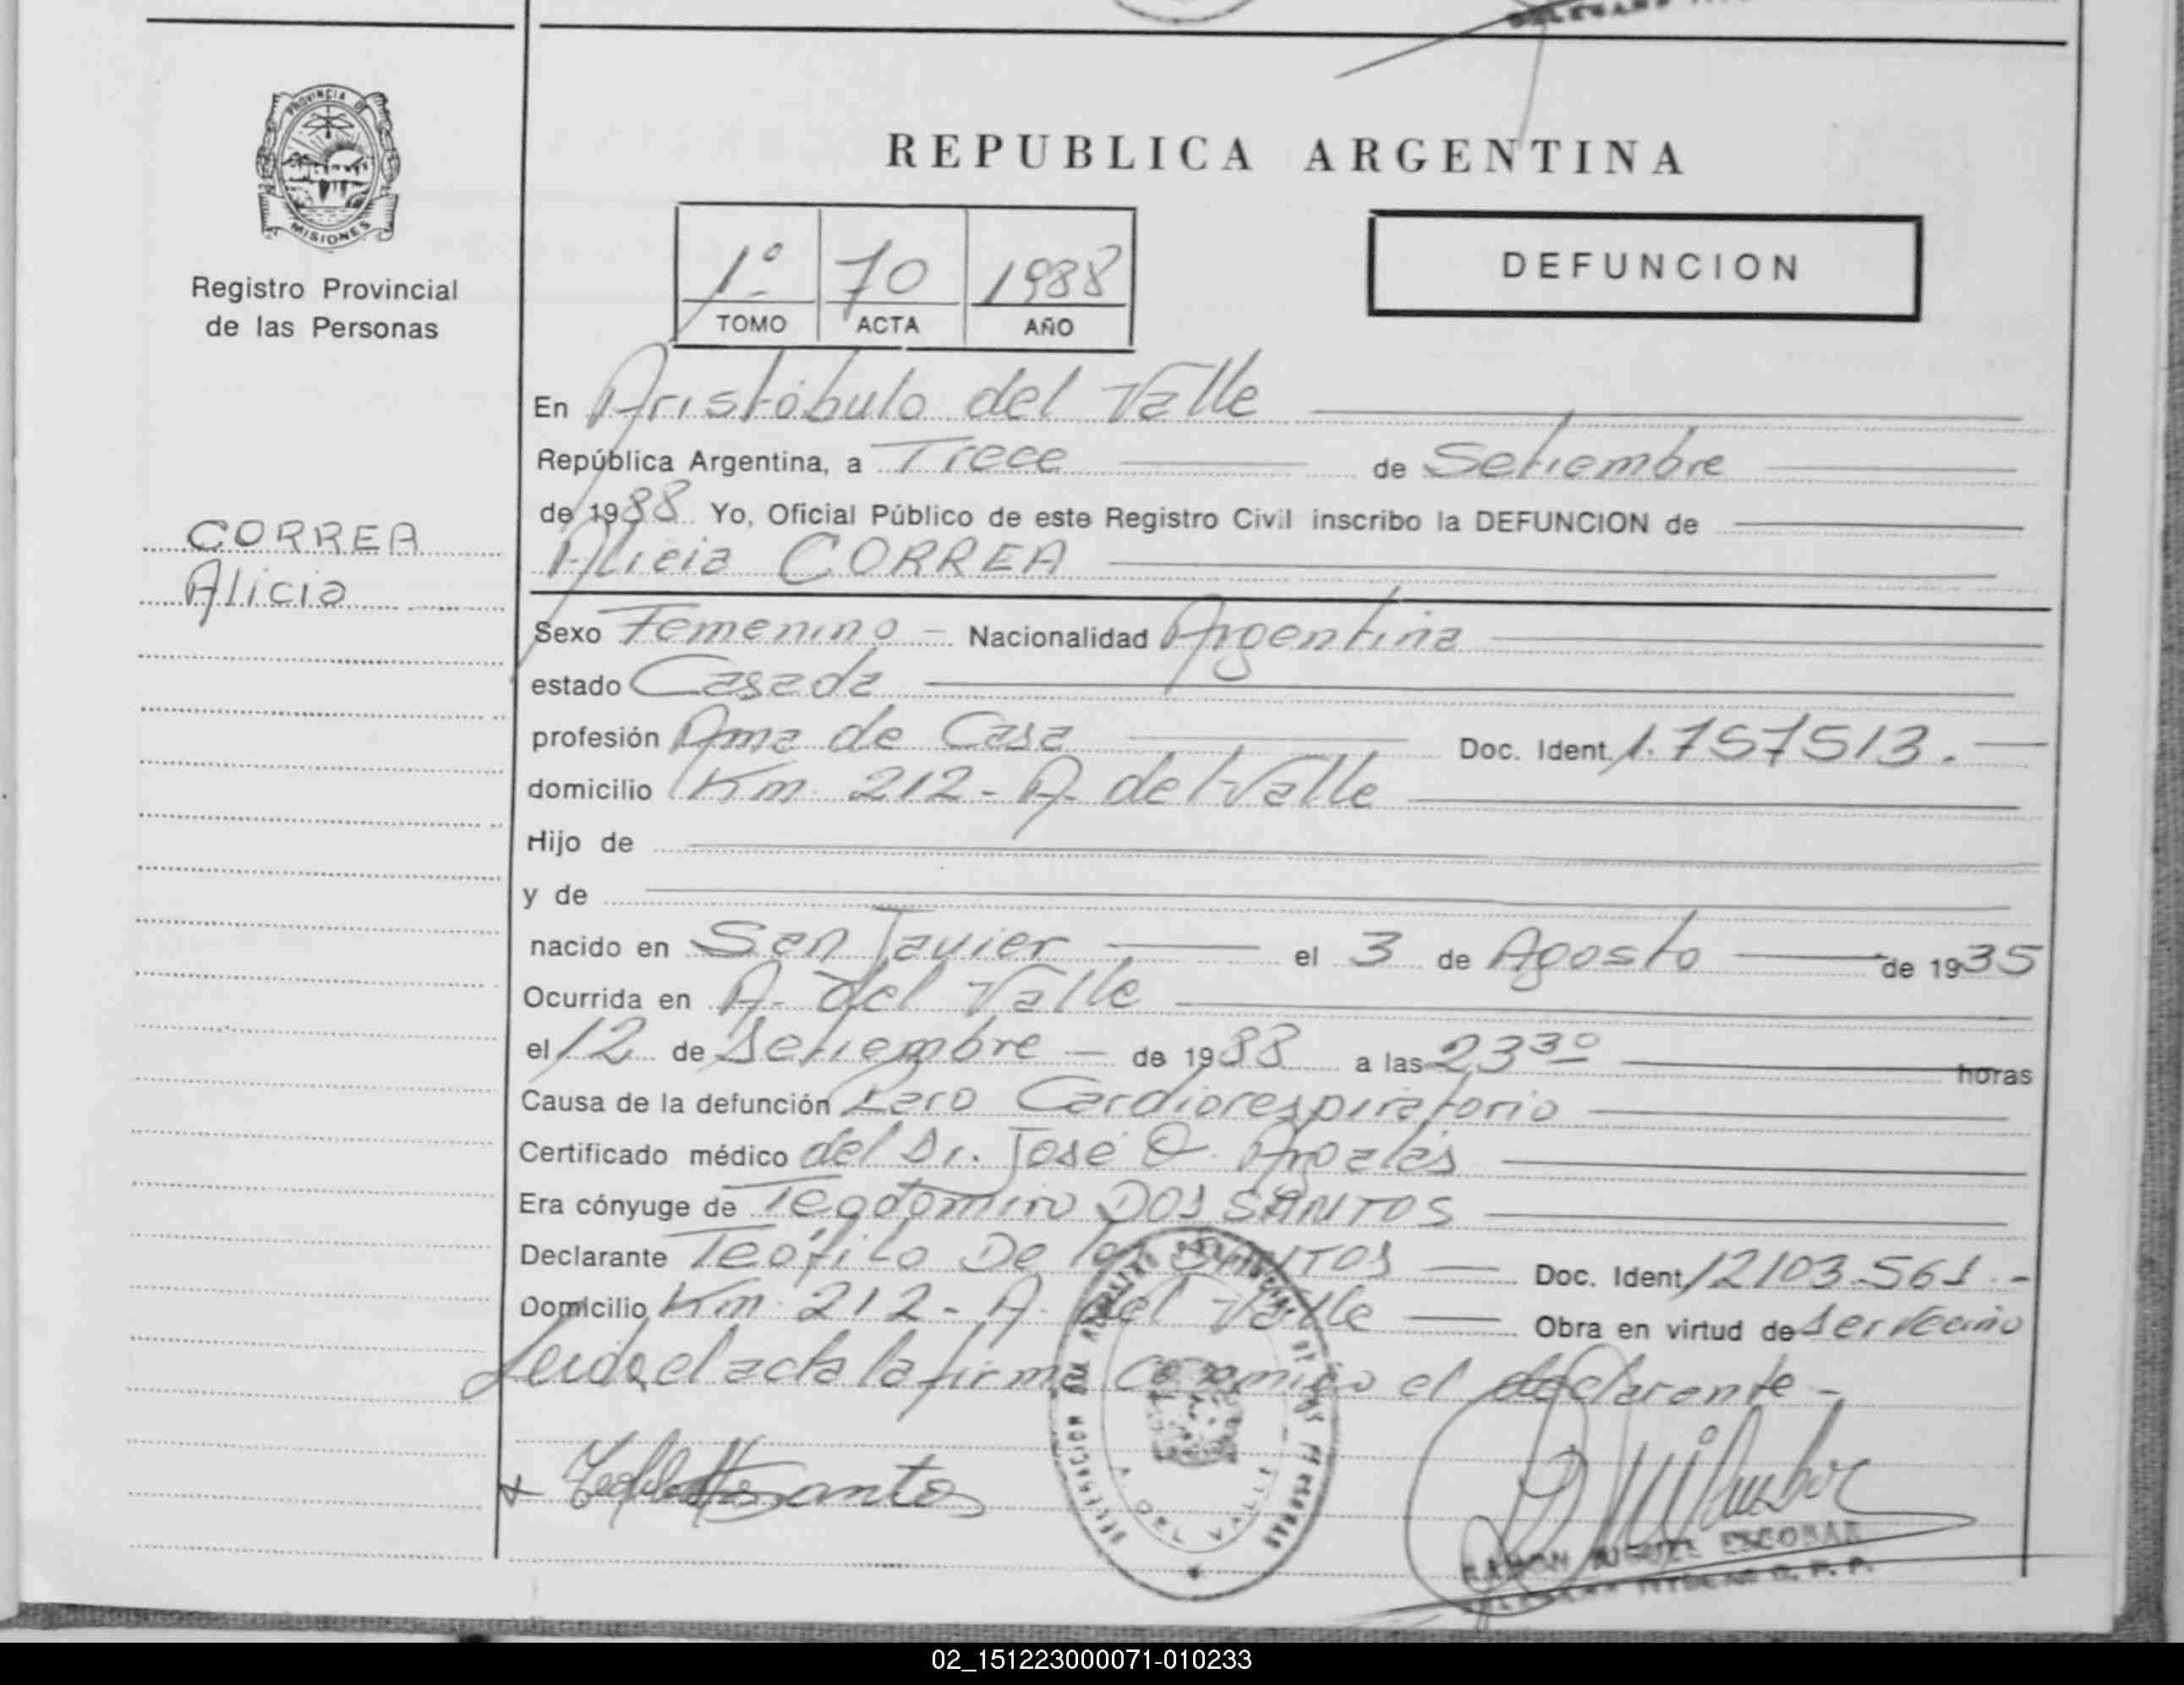 PROVINCIA DE
MISIONES
Registro Provincial
de las Personas
CORREA
Alicia
REPUBLICA ARGENTINA
1º 70 1988
TOMO ACTA AÑO
DEFUNCION
En Aristóbulo del Valle
República Argentina, a Trece de Setiembre
de 1988 Yo, Oficial Público de este Registro Civil inscribo la DEFUNCION de
Alicia CORREA
Sexo Femenino - Nacionalidad Argentina
estado Casada
profesión Ama de Casa Doc. Ident. 1.757513.
domicilio Km. 212 - A. del Valle
Hijo de
y de
nacido en San Javier el 3 de Agosto de 1935
Ocurrida en A. del Valle
el 12 de Setiembre - de 1988 a las 23 30 horas
Causa de la defunción Paro Cardiorespiratorio
Certificado médico del Dr. José O.
Era cónyuge de Teodomiro DOS SANTOS
Declarante Teófilo De los SANTOS Doc. Ident. 12103.561.-
Domicilio Km. 212 - A. del Valle Obra en virtud de ser vecino
Leida el acta la firma conmigo el declarante.-
RAMON MIGUEL ESCOBAR
02_151223000071-010233